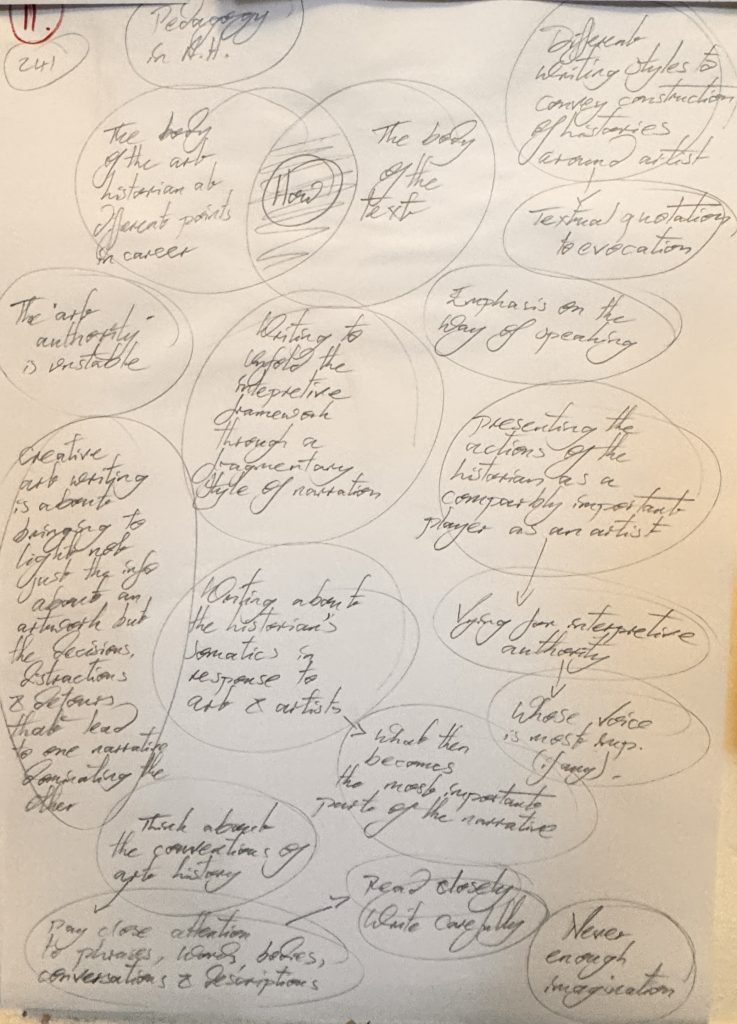 11.
241
Pedagogy
in A.H.
The body
of the art
historian at
different points
in career
How
The body
of the
text
Different
writing styles to
convey construction
of histories
around artist
Textual quotation
to evocation
Emphasis on the
way of speaking
The "art
authority"
is unstable
Writing to
unfold the
intepretive
framework
through a
fragmentary
style of narration
presenting the
actions of the
historian as a
comparbly important
player as an artist
Vying for interpretive
authority
whose voice
is most imp.
(if any).
Creative
art writing
is about
bringing to
light not
just the info
about an
artwork but
the decisions,
distractions
& detours
that lead
to one narrative
dominating the
other
Writing about
the historian's
somatics in
response to
art & artists
what then
becomes
the most important
parts of the narrative
Think about
the conventions of
art history
Pay close attention
to phrases, words, bodies,
conversations & descriptions
Read closely
Write carefully
Never
enough
imagination